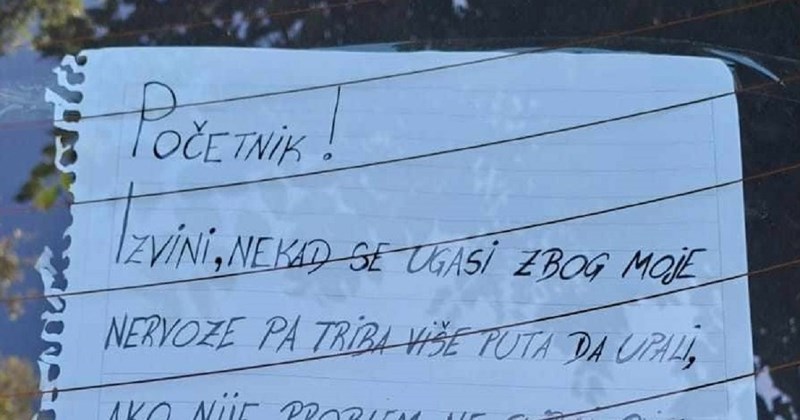 POČETNIK!
IZVINI, NEKAD SE UGASI ZBOG MOJE
NERVOZE PA TRIBA VIŠE PUTA DA UPALI,
AKO NIJE PROBLEM NE